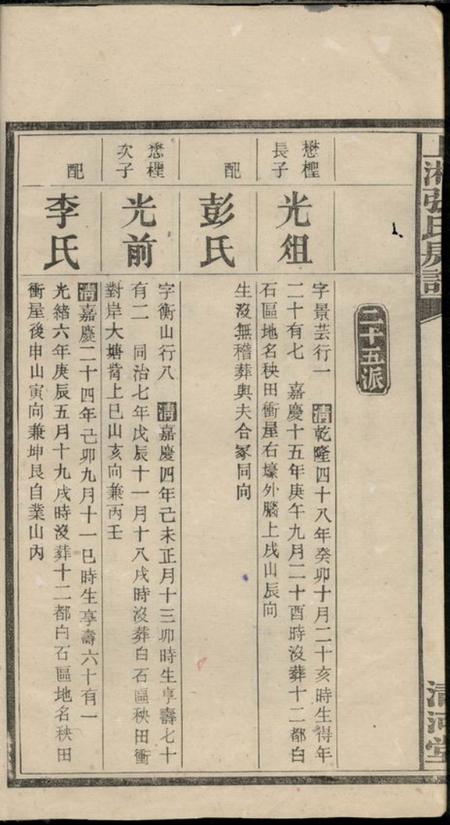 上湘張氏房譜
清河堂
二十五派
懋樫
長子
光俎
字景芸行一 清乾隆四十八年癸卯十月二十亥時生得年
二十有七 嘉慶十五年庚午九月二十酉時沒葬十二都白
石區地名秧田衝屋右壕外腦上戌山辰向
配
彭氏
生沒無稽葬與夫合冢同向
懋樫
次子
光前
字衡山行八 清嘉慶四年己未正月十三卯時生享壽七十
有二 同治七年戊辰十一月十八戌時沒葬白石區秧田衝
對岸大塘嵴上巳山亥向兼丙壬
配
李氏
清嘉慶二十四年己卯九月十一巳時生享壽六十有一
光緒六年庚辰五月十九戌時沒葬十二都白石區地名秧田
衝屋後申山寅向兼坤艮自業山內